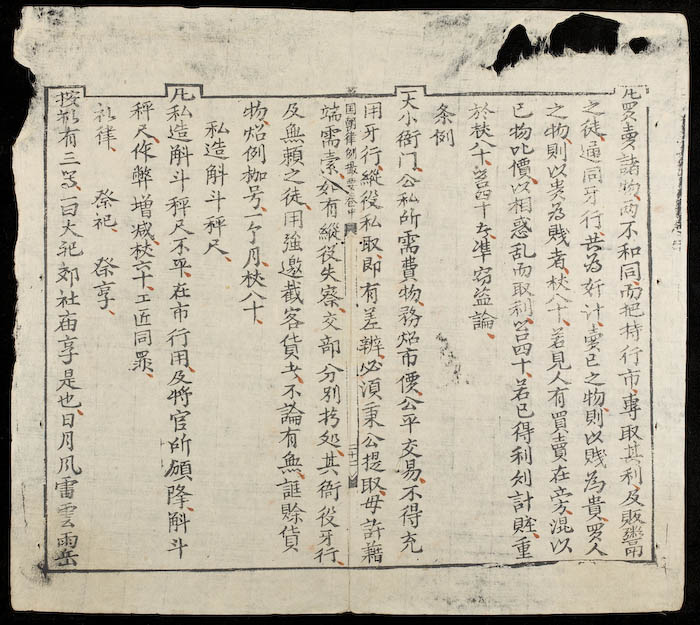 凡買賣諸物两不和同而把持行市專取其利及販鬻
之徒通同牙行共為奸计賣己之物則以賎為貴買人
之物則以贵為賎者杖八十若見人有買賣在旁混以
己物比價以相惑乱而取利笞四十若已得利刄計賍重
於杖八十笞四十者準窃盜論
条例
大小衙门公私所需費物務炤市價公平交易不得充
用牙行縱役私取即有差辨必須秉公提取毋許藉
端需索如有縱役失察交部分别拷処其衙役牙行
及無賴之徒用強邀截客貨者不論有無誆賒貨
物炤例枷号一个月杖八十
私造斛斗秤尺
凡私造斛斗秤尺不平在市行用及将官所頒降斛斗
秤尺作弊增减杖六十工匠同罪
礼律 祭祀 祭享
按祀有三等一曰大祀郊社庙享是也日月风雷雲雨岳
國朝律例撮要卷中
二十二